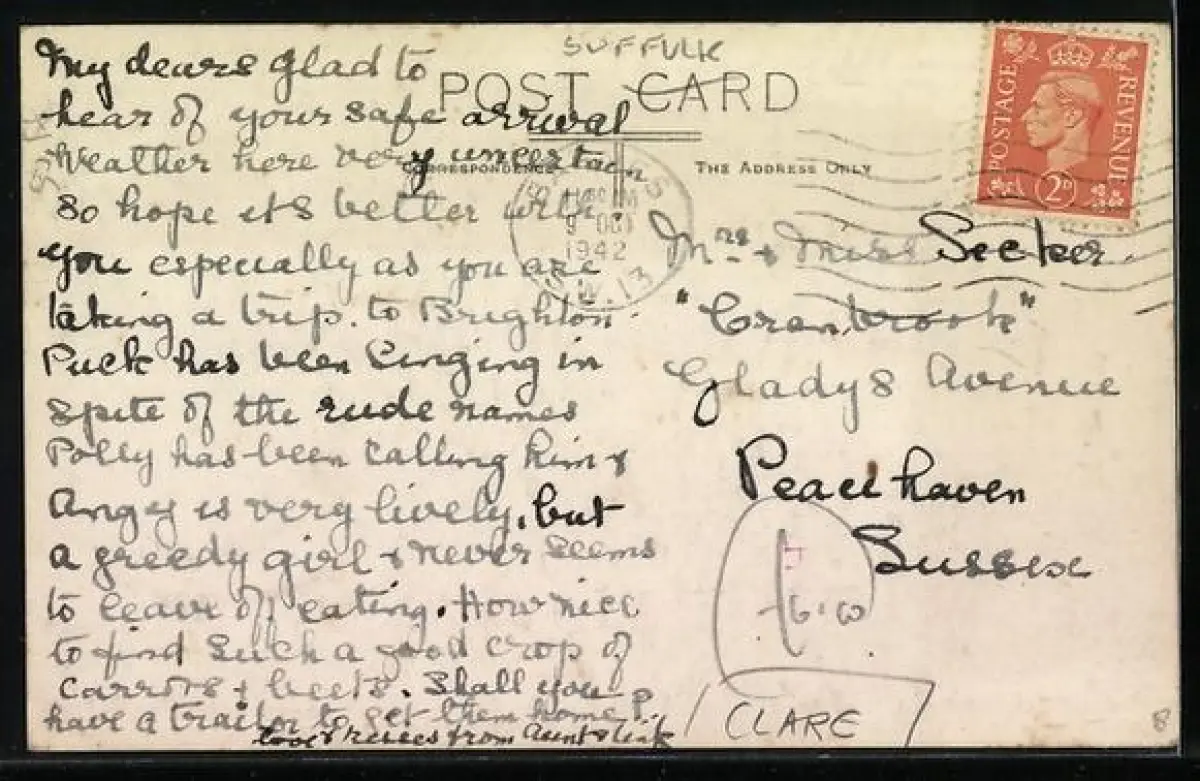 SUFFOLK
POST CARD
CORRESPONDENCE
THE ADDRESS ONLY
POSTAGE REVENUE
2D
9 OCT
1942
S.W.13
My dears Glad to
hear of your safe arrival
Weather here very uncertain
so hope its better with
you especially as you are
taking a trip to Brighton.
Puck has been singing in
spite of the rude names
Polly has been calling him &
Angy is very lively, but
a greedy girl & never seems
to leave off eating. How nice
to find such a good crop of
carrots & beets. Shall you
have a trailor to get them home?
love & kisses from Aunt
Mrs & Miss Secker.
"Cranbrook"
Gladys Avenue
Peacehaven
Sussex
CLARE
8